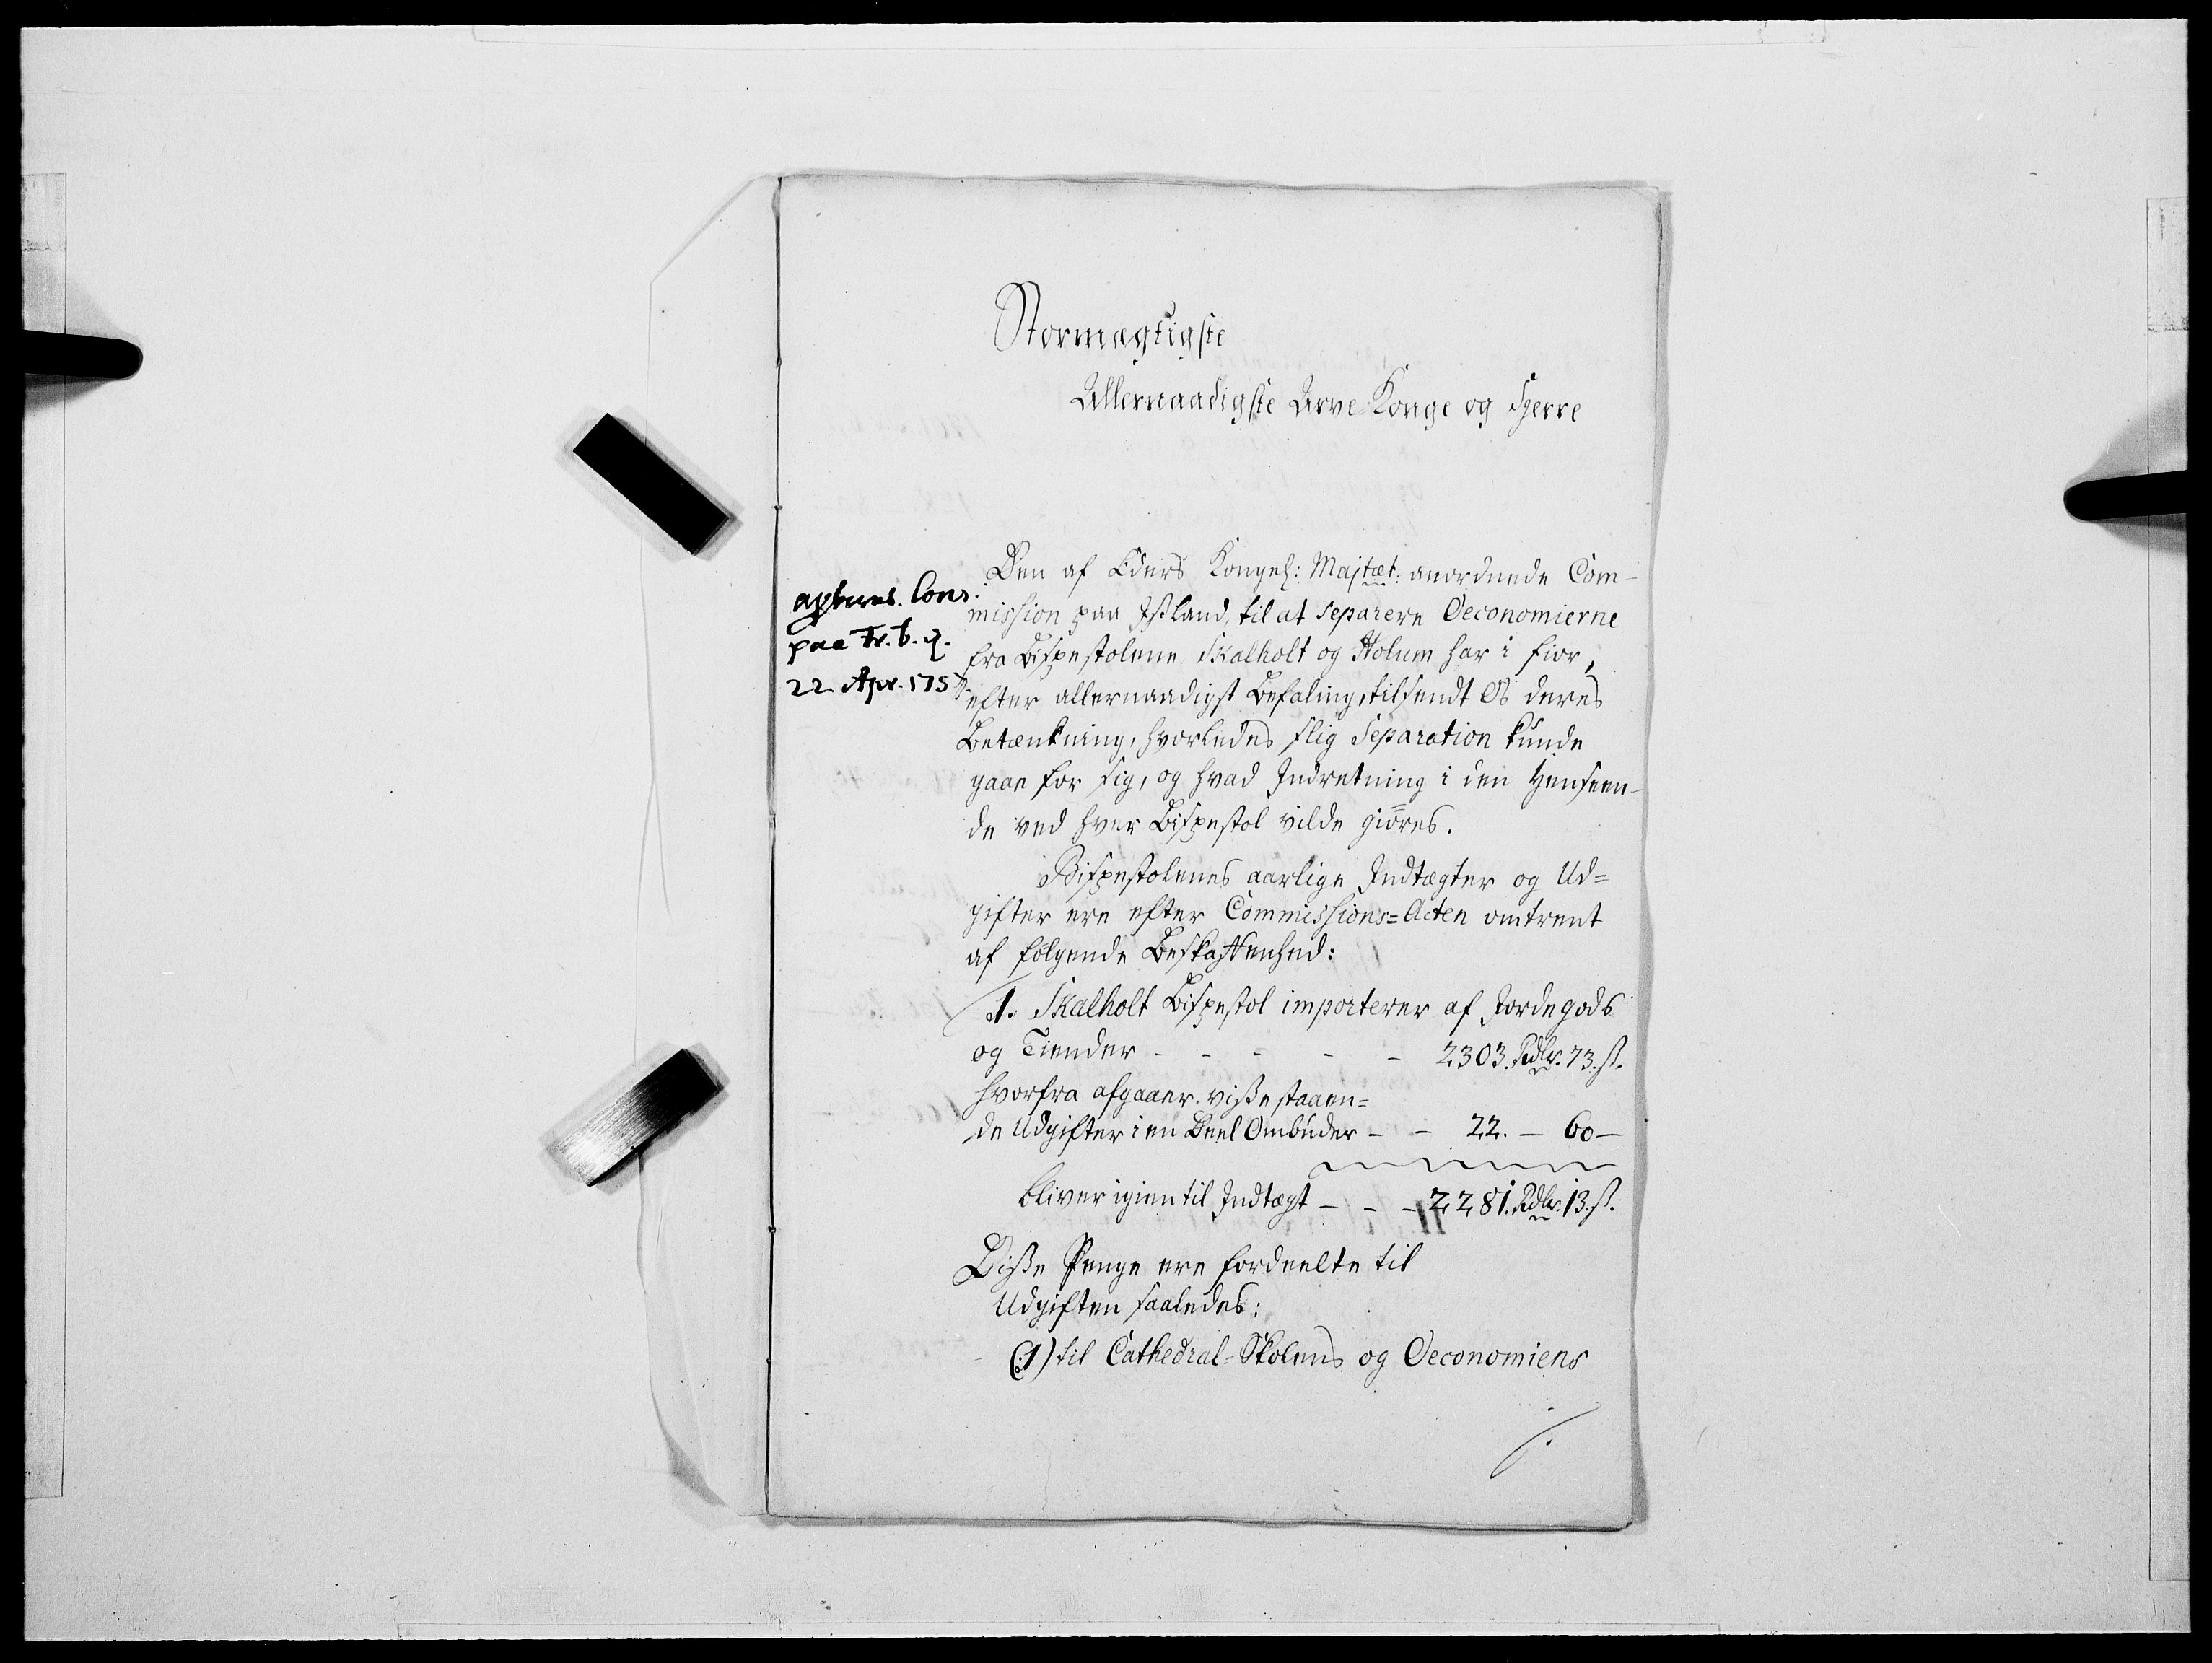 Stormægtigste
Allernaadigste Arve-Konge og Herre
Den af Eders Kongel: Majtæt: anordnede Com-
mission paa Island, til at separere Oeconomierne
fra Bispestolene Skalholt og Holum har i fior,
efter allernaadigst Befaling, tilsendt Os deres
Betænkning, hvorledes slig Separation kunde
gaae for sig, og hvad Indretning i den Henseen-
de ved hver Bispestol vilde giøres.
approb. Cons.
paa Fr.b. d.
22. Apr. 1757.
Bispestolenes aarlige Indtægter og Ud=
gifter ere efter Commissions=Acten omtrent
af følgende Beskaffenhed:
1. Skalholt Bispestol importerer af Jordegods
og Tiender - - - - - 2303. Rdlr. 73. ß.
hvorfra afgaaer visse staaen=
de Udgifter i en Deel Ombuder - - 22. - 60 -
bliver igien til Indtægt - - - 2281. Rdlr. 13. ß.
Disse Penge ere fordeelte til
Udgiften saaledes:
(1) til Cathedral=Skolens og Oeconomiens